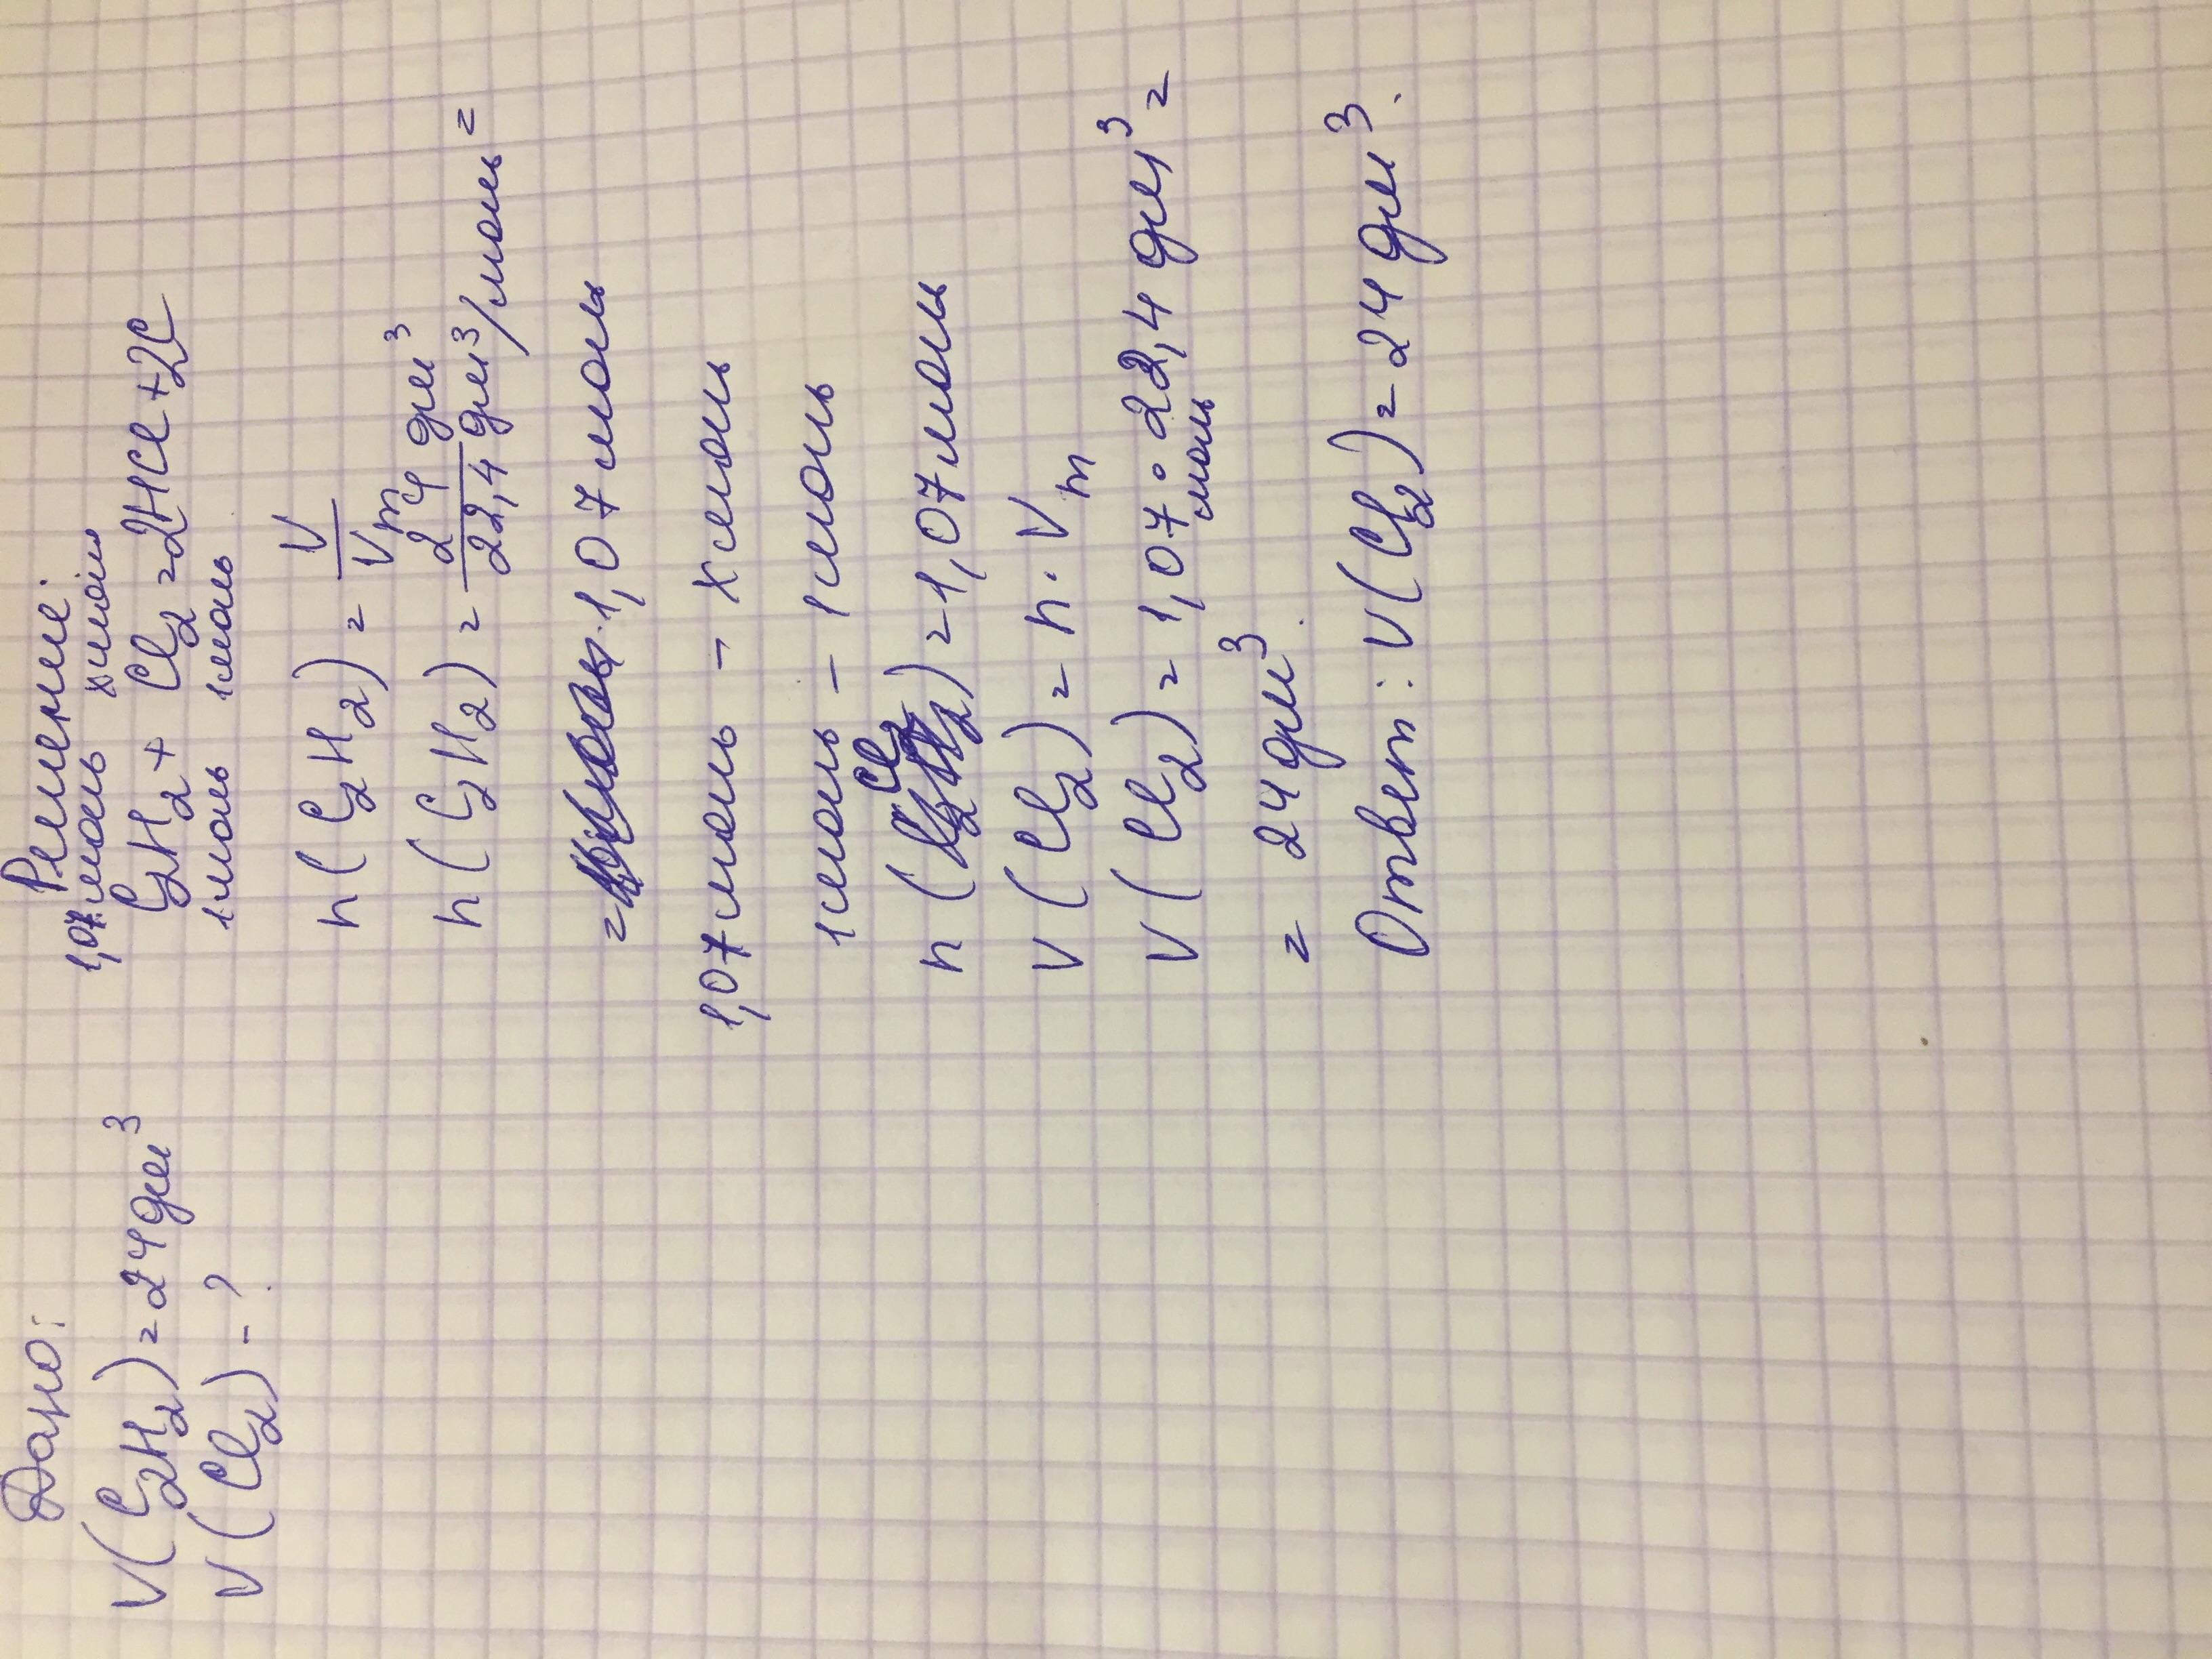 Дано:
V(C₂H₂)=24дм³
V(Cl₂)-?
Решение:
1,07моль xмоль
C₂H₂+ Cl₂=2HCl+2C
1моль 1моль
n(C₂H₂)=V/Vm
n(C₂H₂)=24 дм³/22,4 дм³/моль=
= 1,07моль
1,07моль - xмоль
1моль - 1моль
n(Cl₂)=1,07моль
V(Cl₂)=n·Vm
V(Cl₂)=1,07моль·22,4 дм³=
= 24дм³.
Ответ: V(Cl₂)=24дм³.